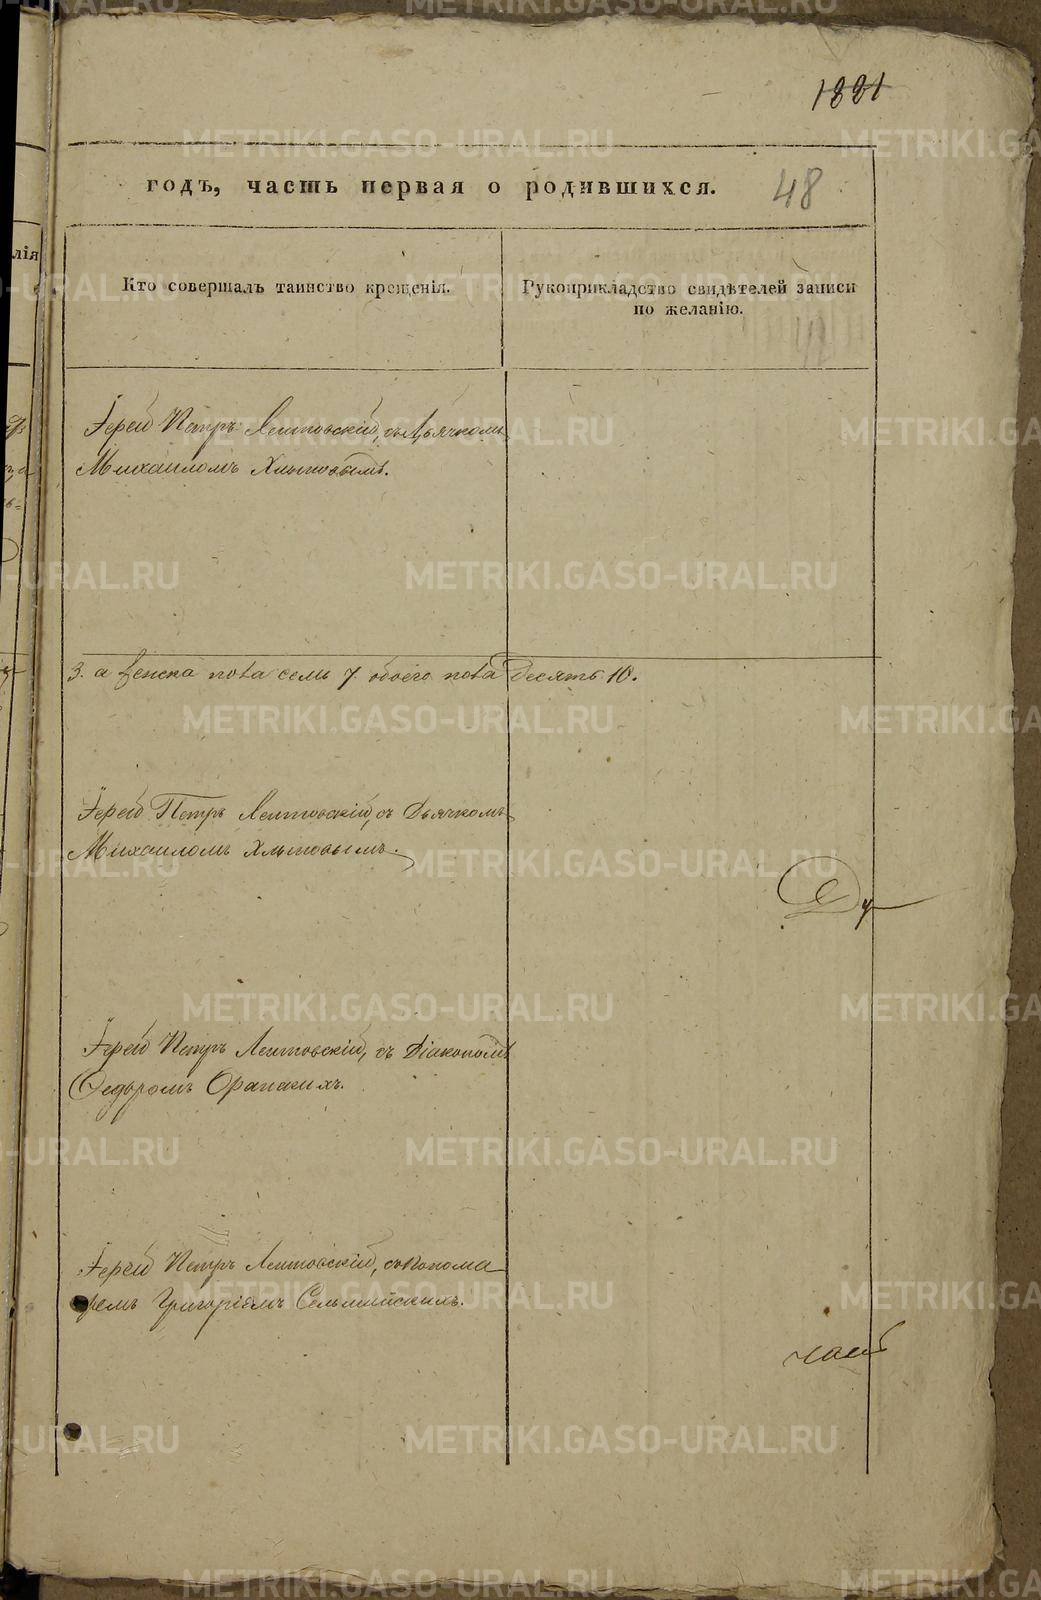 1881
годъ, часть первая о родившихся. 48
лія
Кто совершалъ таинство крещенія.
Рукоприкладство свидѣтелей записи
по желанію.
Іерей Петръ Лептовскій, съ Дьячкомъ
Михаиломъ Хлыновымъ.
3. а женска пола семь 7. обоего пола десять 10.
Іерей Петръ Лептовскій, съ Дьячкомъ
Михаиломъ Хлыновымъ.
Іерей Петръ Лептовскій, съ Діакономъ
Федоромъ
Іерей Петръ Лептовскій, съ Понома
ремъ Григоріемъ
METRIKI.GASO-URAL.RU